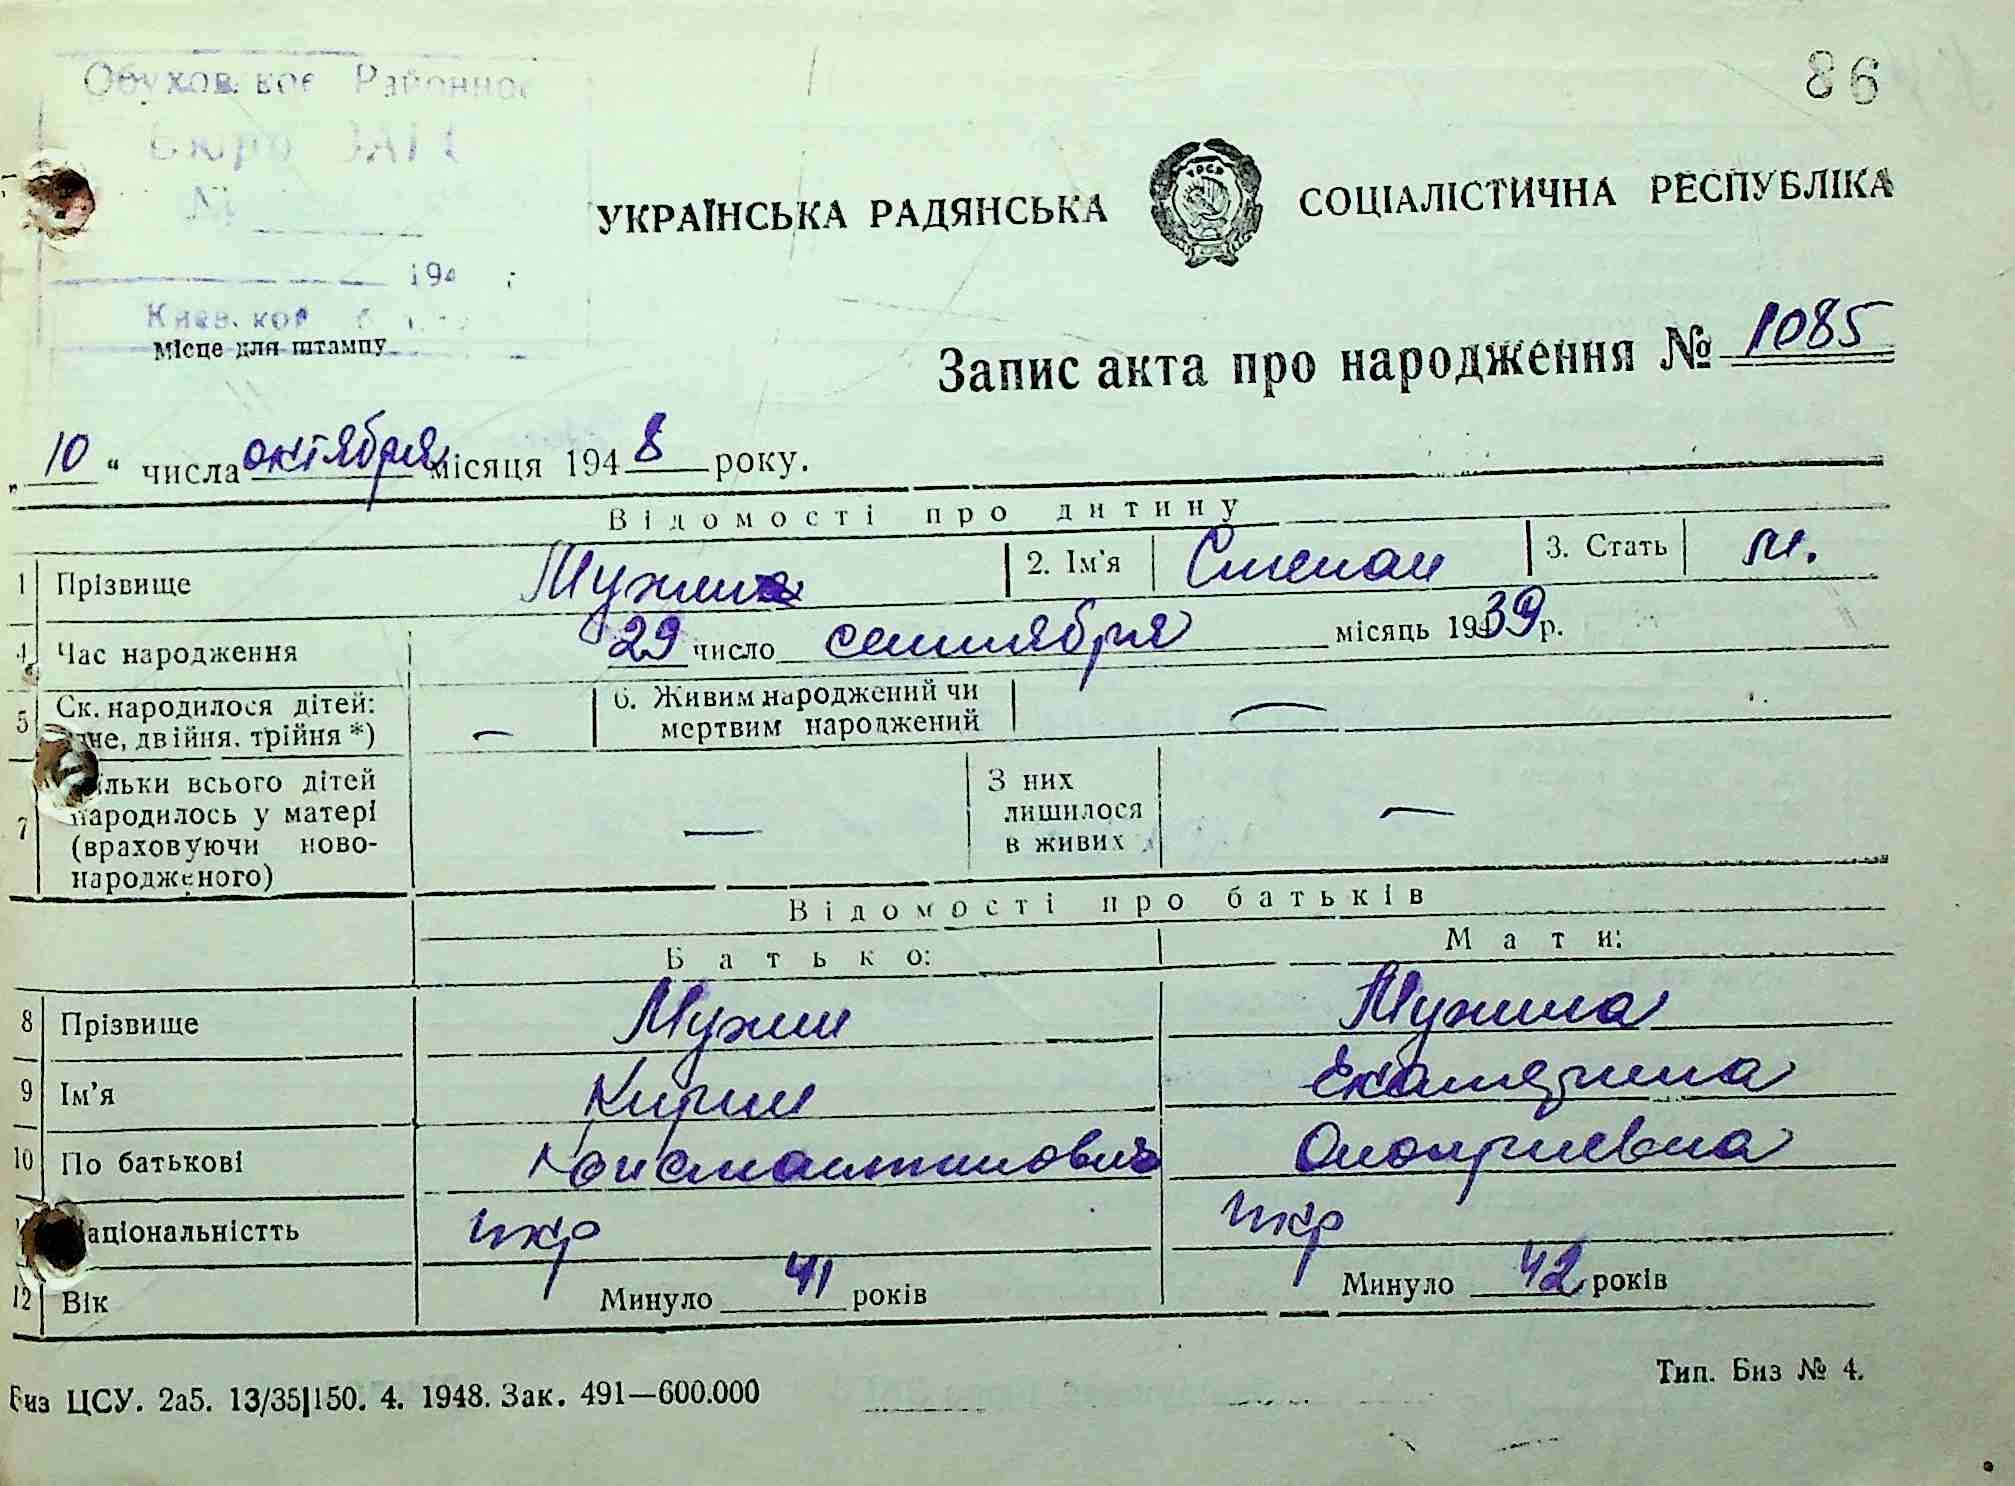 86
Обухов кое Районное
Бюро ЗАГС
№
194
Киев. кой
Місце для штампу
УКРАЇНСЬКА РАДЯНСЬКА СОЦІАЛІСТИЧНА РЕСПУБЛІКА
Запис акта про народження № 1085
„ 10 “ числа октября місяця 194 8 року.
Відомості про дитину
1 Прізвище Мужин 2. Ім'я Степан 3. Стать м.
4 Час народження 29 число сентября місяць 1939 р.
5 Ск. народилося дітей: — 6. Живим народжений чи —
не, двійня, трійня *) мертвим народжений
7 ільки всього дітей — З них —
народилось у матері лишилося
(враховуючи ново- в живих
народженого)
Відомості про батьків
Батько: Мати:
8 Прізвище Мужин Мужина
9 Ім'я Кирил Екатерина
10 По батькові Константинович Оноприевна
аціональністть укр укр
12 Вік Минуло 41 років Минуло 42 років
Биз ЦСУ. 2а5. 13/35|150. 4. 1948. Зак. 491—600.000 Тип. Биз № 4.